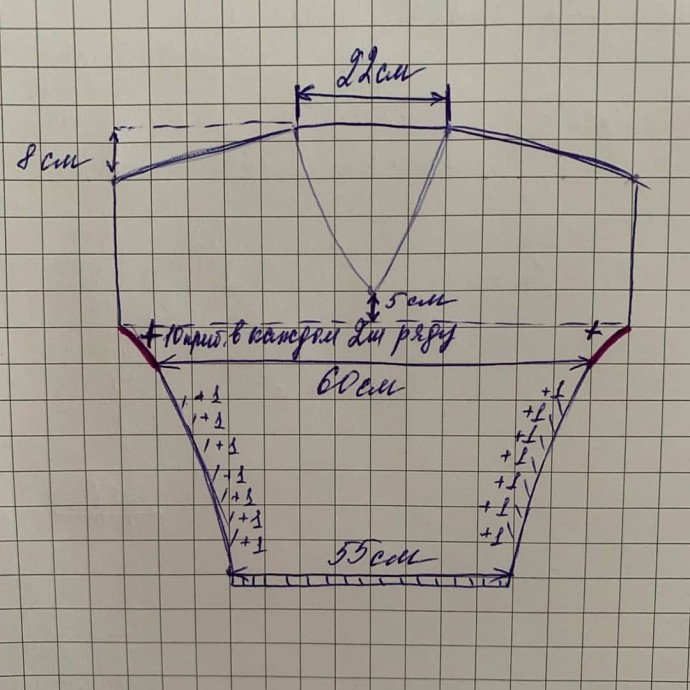 22см
8 см
5 см
+ 10 приб. в каждом 2м ряду +
60см
+1 +1
+1 +1
+1 +1
+1 +1
+1 +1
+1 +1
+1 +1
55см